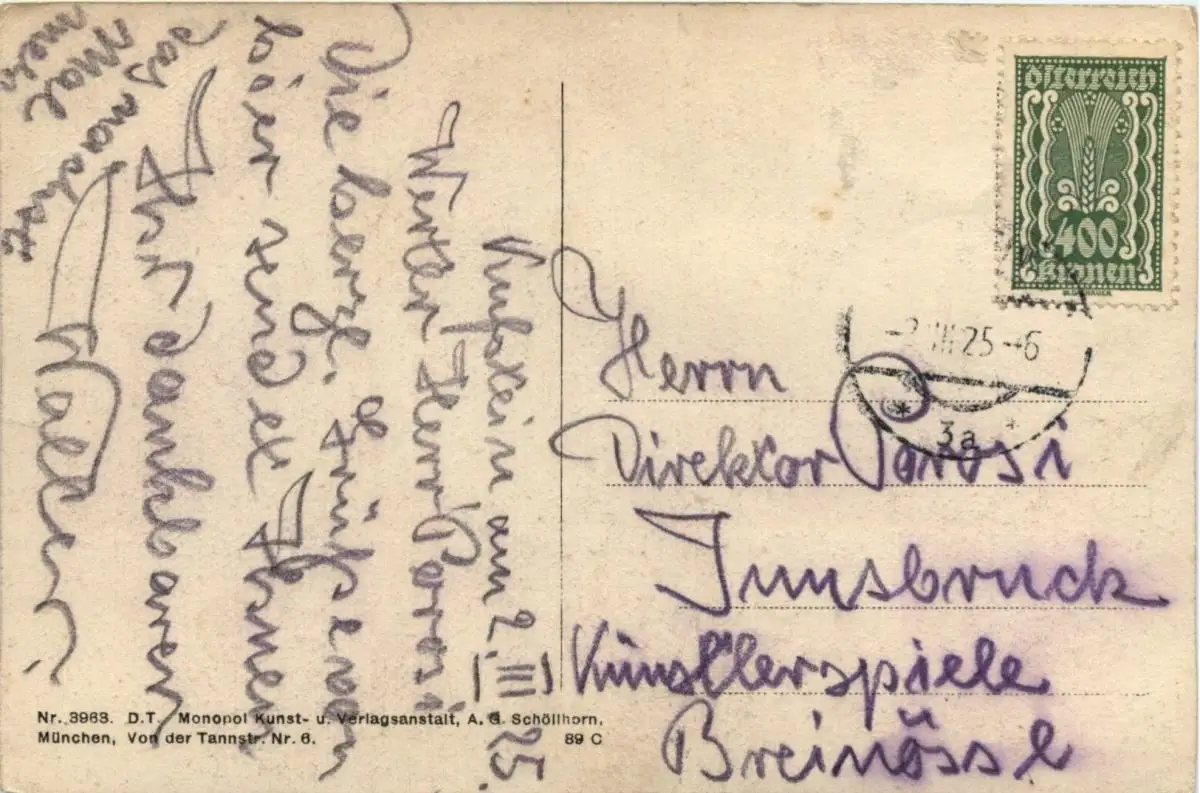 Kufstein am 2. III. 25.
Werter Herr Porosi
Viele herzl. Grüße von
hier sendet Ihnen
Ihr dankbarer
Walter
mein
Mal
das
Herrn
Direktor Porosi
Innsbruck
Künstlerspiele
Breinössl
österreich
400
Kronen
-2.III.25-6
* 3a *
Nr. 3963. D.T. Monopol Kunst- u. Verlagsanstalt, A. G. Schöllhorn,
München, Von der Tannstr. Nr. 6. 89 C